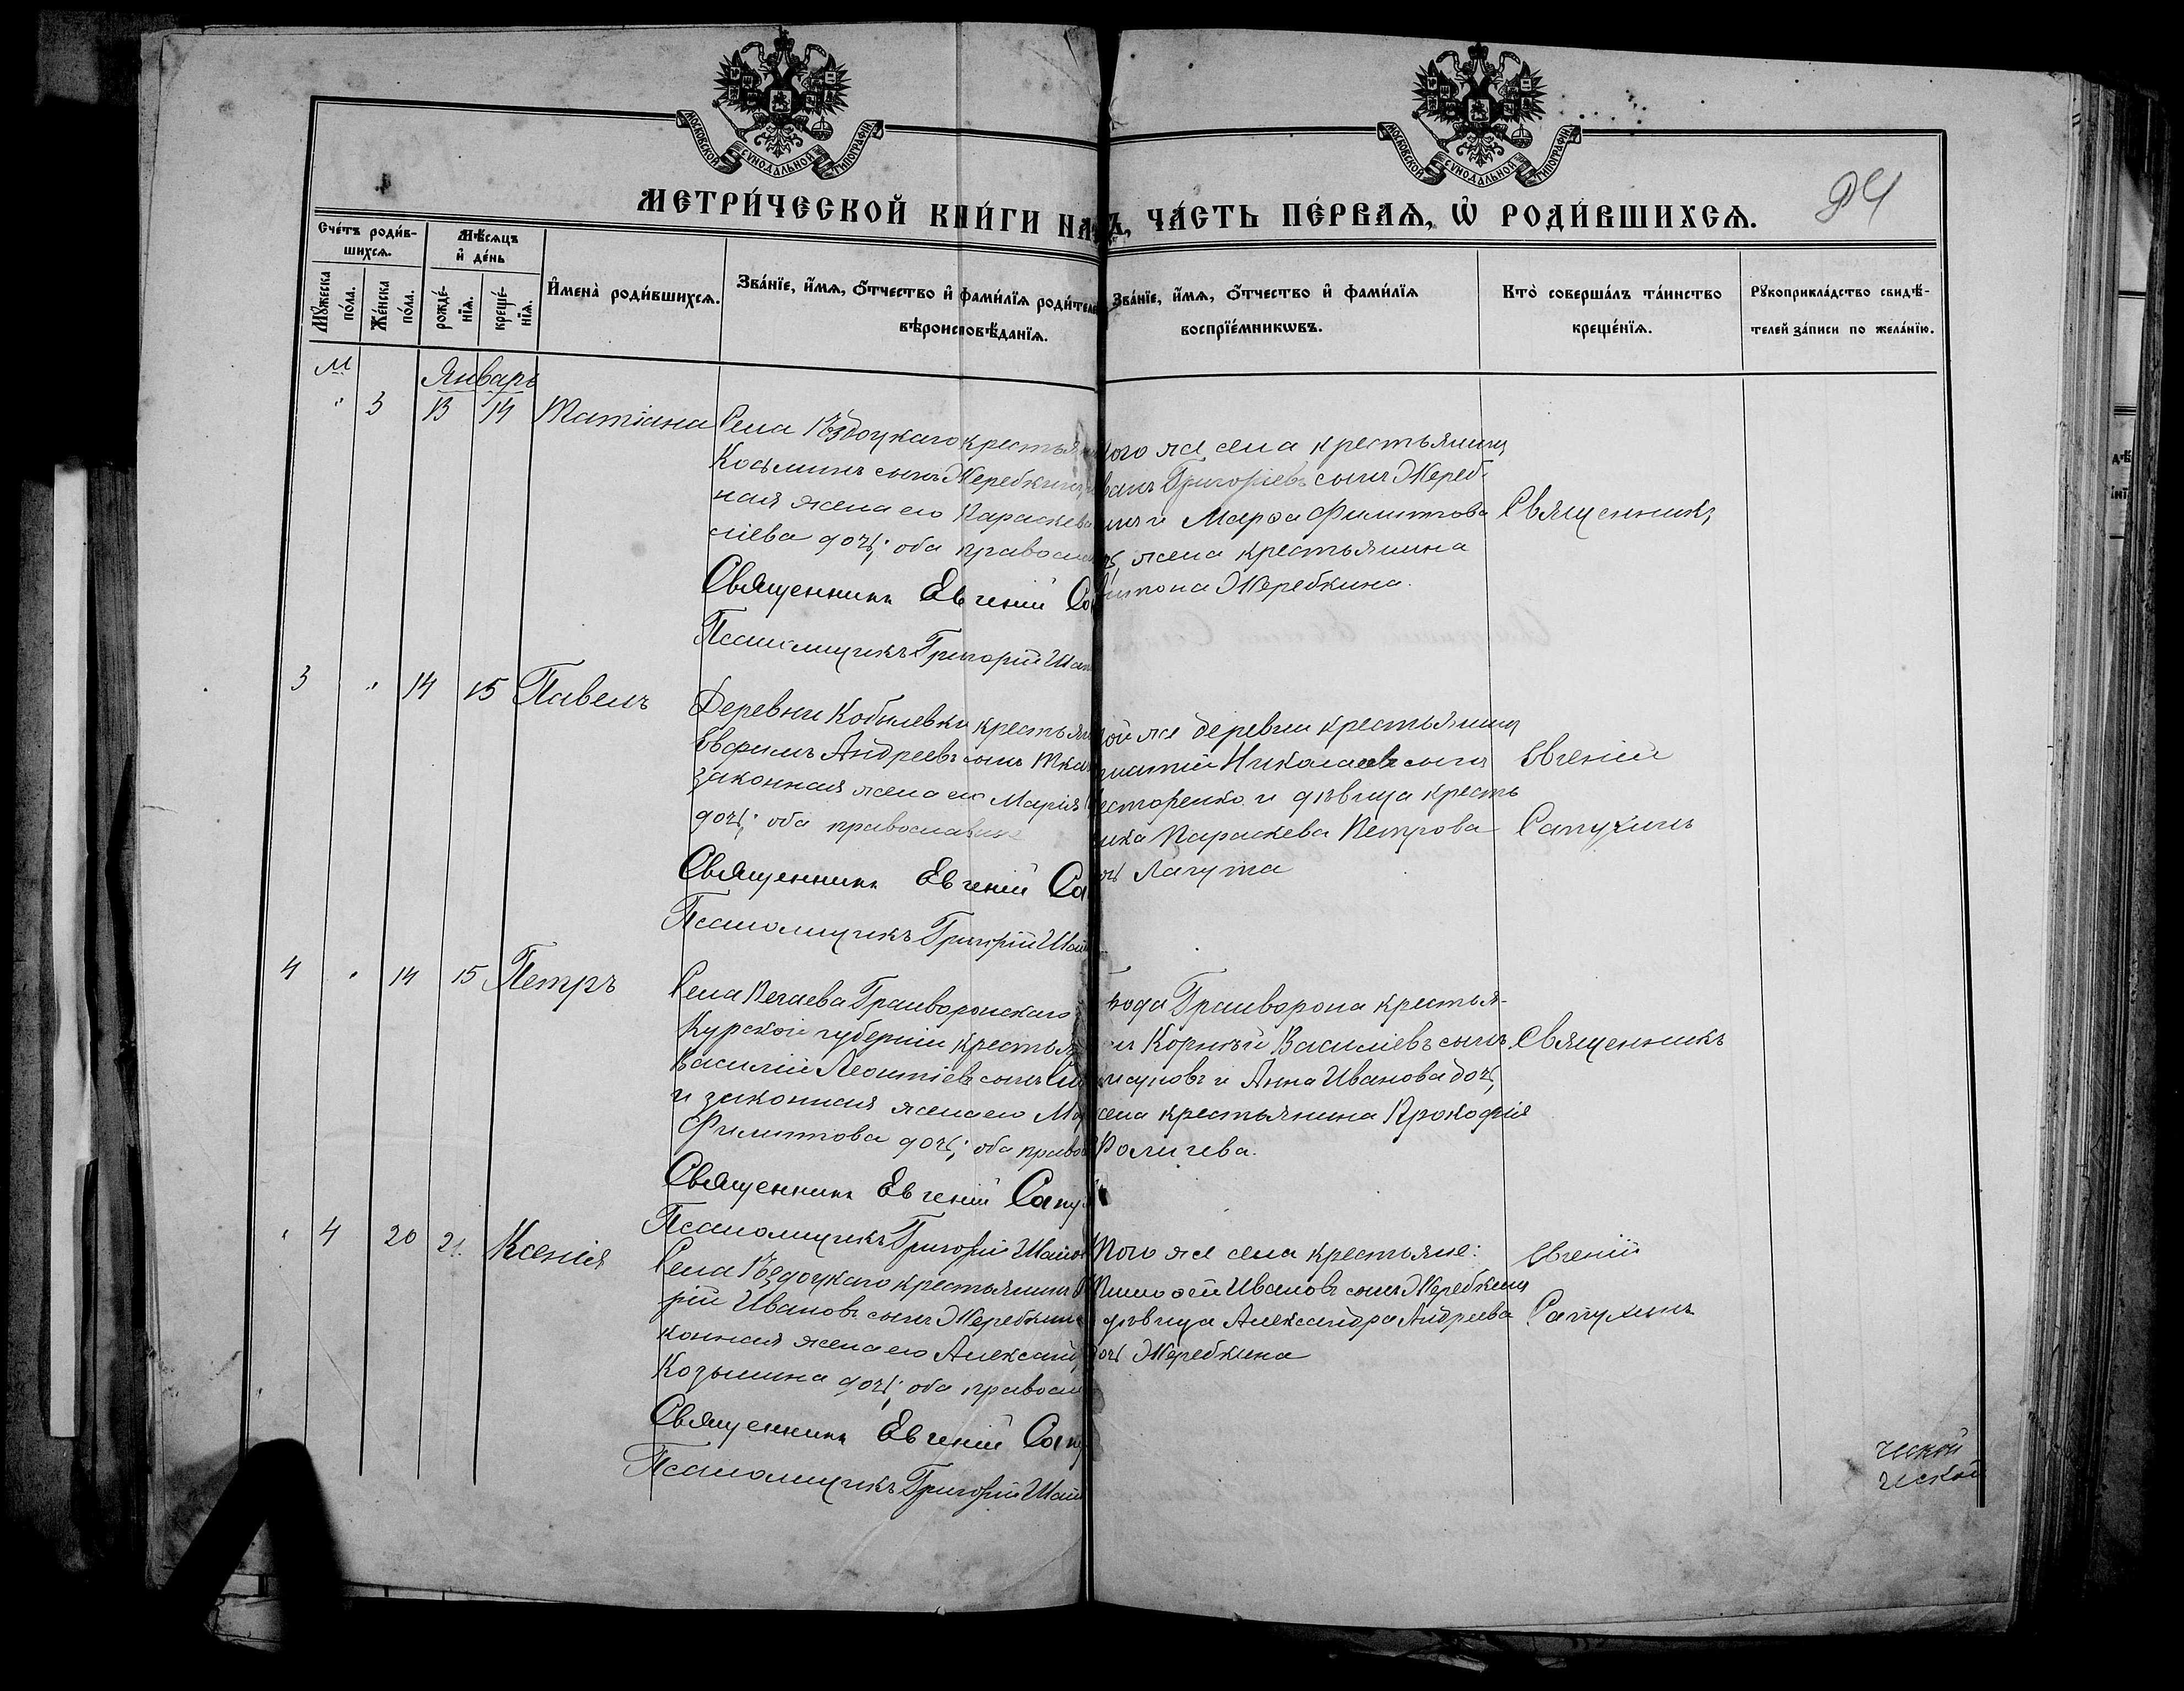 МОСКОВСКОЙ СѴНОДАЛЬНОЙ ТИПОГРАФІИ
МОСКОВСКОЙ СѴНОДАЛЬНОЙ ТИПОГРАФІИ
МЕТРИ́ЧЕСКОЙ КНИ́ГИ НА
Ъ, ЧА́СТЬ ПЕ́РВАѦ, Ѽ РОДИ́ВШИХСѦ.
94
Сче́тъ роди́в-
шихсѧ.
Мꙋ́жеска
по́ла.
Же́нска
по́ла.
Мѣ́сѧцъ
и҆ де́нь
рожде́-
нїѧ.
креще́-
нїѧ.
И҆мена̀ роди́вшихсѧ.
Зва́нїе, и҆́мѧ, ѻ҆́тчество и҆ фами́лїѧ роди́теле
вѣроисповѣ́данїѧ.
Зва́нїе, и҆́мѧ, ѻ҆́тчество и҆ фами́лїѧ
воспрїе́мникѡвъ.
Кто̀ соверша́лъ та́инство
креще́нїѧ.
Рꙋкоприкла́дство свидѣ́-
телей за́писи по жела́нїю.
М
Январь
" 3 13 14 Татіана
Села Ѣздоцкаго крестьян
Козьминъ сынъ Жеребкинъ
ная жена его Параскева
сіева дочь; оба правосла
Священникъ Евгеній Са
Псаломщикъ Григорій Ша
того же села крестьянинъ
ванъ Григоріевъ сынъ Жереб-
инъ и Марѳа Филиппова
жена крестьянина
Жеребкина.
Священникъ
3 " 14 15 Павелъ
Деревни Кобылевки крестьян
Евфимъ Андреевъ сынъ Тка
законная жена его Марія
дочь; оба православные
Священникъ Евгеній Са
Псаломщикъ Григорій Ша
той же деревни крестьянинъ
гнатій Николаевъ сынъ
есторенко и дѣвица кресть
нка Параскева Петрова
очь Лагута
Евгеній
Сапухинъ
4 " 14 15 Петръ
Села Грайворонскаго
Курской губерніи крестьян
Василій Леонтіевъ сынъ
и законная жена его Ма
Филиппова дочь; оба право
Священникъ Евгеній Сапу
Псаломщикъ Григорій Ша
рода Грайворона крестья-
инъ Корнѣй Василіевъ сынъ
и Анна Иванова дочь,
жена крестьянина Прокофія
Священникъ
" 4 20 21. Ксенія
Села Ѣздоцкаго крестьянинъ
рій Ивановъ сынъ Жеребкинъ
конная жена его Александ
Козьмина дочь; оба правосла
Священникъ Евгеній Сапу
Псаломщикъ Григорій Ша
Того же села крестьяне:
Тимоѳей Ивановъ сынъ Жеребкинъ
дѣвица Александра Андреева
дочь Жеребкина
Евгеній
Сапухинъ
ческой
ческой